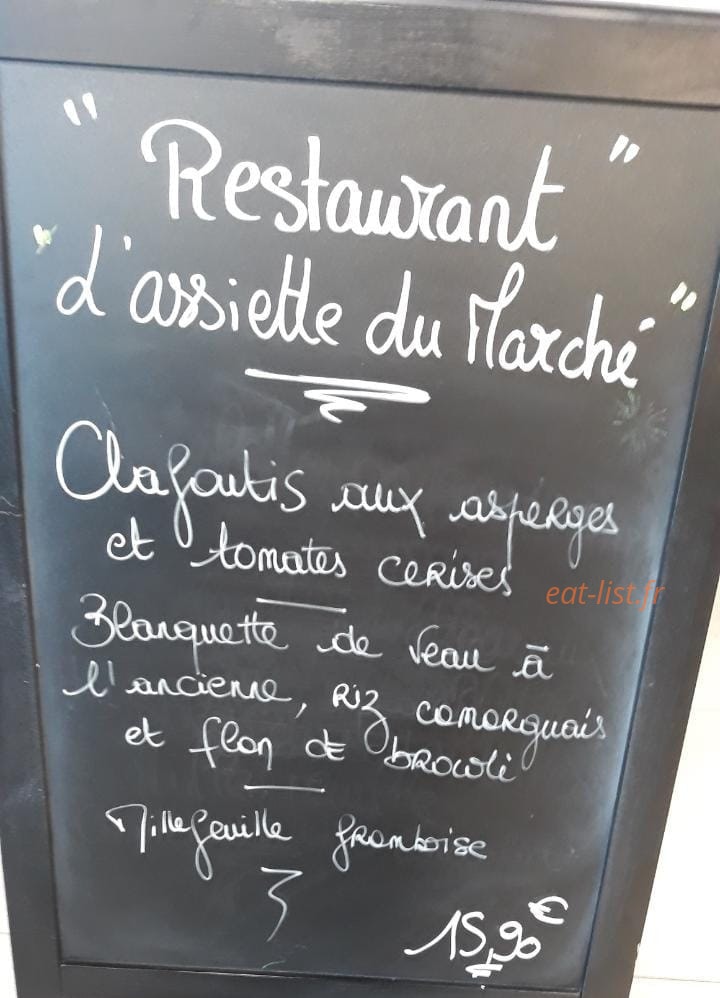 " Restaurant "
" L'assiette du Marché "
Clafoutis aux asperges
et tomates cerises
eat-list.fr
Blanquette de veau à
l'ancienne, riz camarguais
et flan de brocoli
Millefeuille framboise
15,90€